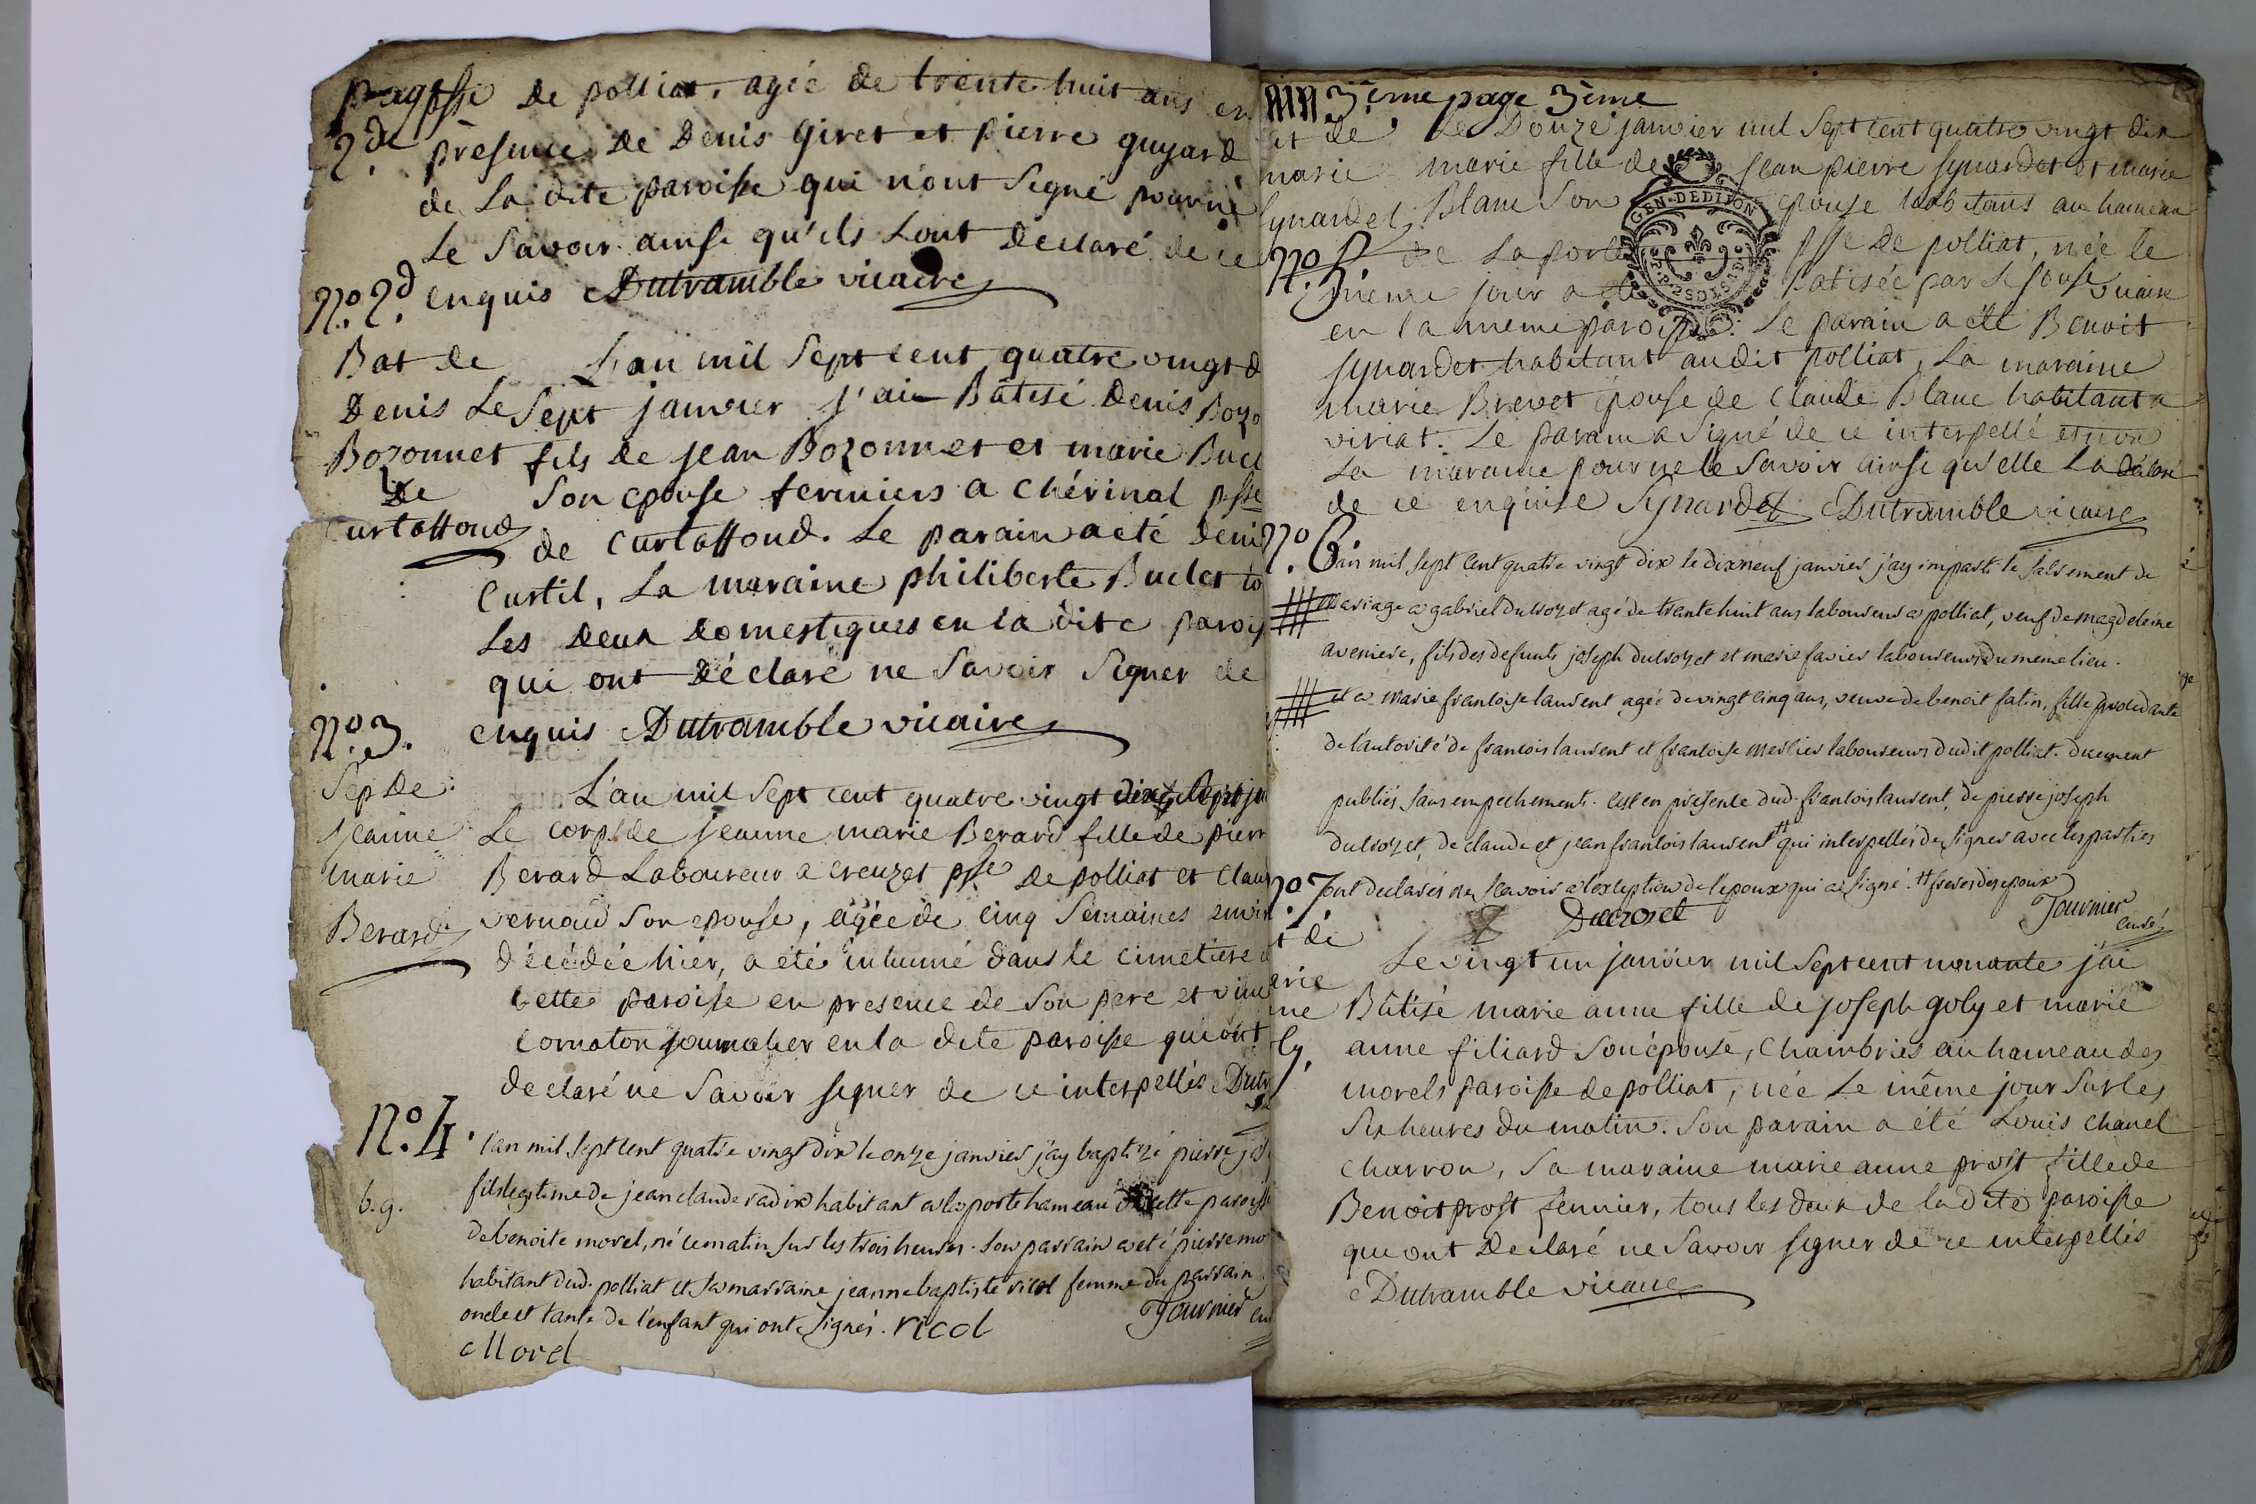 page psse de polliat, agée de trente huit ans en
2de presence de Denis Giret et pierre guyard
de la dite paroisse qui n'ont signé pour ne
le savoir ainsi qu'ils l'ont declaré de ce
No. 2d enquis Dutramble vicaire
Bat de L'an mil sept cent quatre vingt d
Denis Le sept janvier j'ai Bâtisé Denis Bozo
Bozonnet fils de jean Bozonnet et marie Bucl
de son epouse fermiers a Chérinal psse
Curtaffond de Curtaffond. Le parain a eté Deni
Curtil, La maraine philiberte Buclet to
les deux domestiques en la dite parois
qui ont déclaré ne savoir signer de
No. 3. enquis Dutramble vicaire
Sep de L'an mil sept cent quatre vingt dix le sept ja
jeanne Le corps de jeanne marie Berard fille de pierr
marie Berard Laboureur a creuzet psse de polliat et Clau
Berard vernaud son epouse, agée de cinq semaines envir
décédée hier, a été inhumé dans le cimetiere
cette paroisse en presence de son pere et vinc
Cornaton journalier en la dite paroisse qui ont
declaré ne savoir signer de ce interpellés Dutr
No. 4. l'an mil sept cent quatre vingt dix le onze janvier j'ay baptizé pierre jos
b. g. fils legitime de jean claude radix habitant a la porte hameau de cette paroisse
de benoite morel, né ce matin sur les trois heures. son parrain a eté pierre mo
habitant dud. polliat et sa marraine jeanne baptiste ricol femme du parrain
oncle et tante de l'enfant qui ont signés. ricol Tournier cu
Morel
3ème page 3ème
at de Le Douze janvier mil sept cent quatre vingt dix
marie marie fille de jean pierre synardet et marie
synardet Blanc son epouse habitans au hameau
No. 5 de La porte psse de polliat, née le
même jour a été batisée par je sousé vicaire
en la meme paroisse. Le parain a été Benoit
synardet habitant audit polliat, La maraine
marie Brevet épouse de Claude Blanc habitant a
viriat. Le parain a signé de ce interpellé et non
La maraine pour ne le savoir ainsi qu'elle La déclaré
de ce enquise Synardet Dutramble vicaire
No. 6. l'an mil sept cent quatre vingt dix le dixneuf janvier j'ay imparti le sacrement de
mariage a gabriel ducrozet agé de trante huit ans laboureur a polliat, veuf de magdeleine
aveniere, fils des defunts joseph ducrozet et marie favier laboureurs du meme lieu.
et a marie francoise laurent agée de vingt cinq ans, veuve de benoit fatin, fille procedante
de l'autorité de francois laurent et francoise merlier laboureurs dudit polliat. duement
publiés sans empechement. cest en presence dud. francois laurent, de pierre joseph
ducrozet, de claude et jean francois laurent # qui interpellés de signer avec les parties
No. 7 ont declarés ne scavoir a l'exception de l'epoux qui a signé. # freres des epoux
Ducroset Tournier curé
t de Le vingt un janvier mil sept cent nonante j'ai
arie Bâtisé marie anne fille de joseph goly et marie
ne anne filiard son épouse, Chambriés au hameau des
ly, morels paroisse de polliat, née Le même jour sur les
six heures du matin. Son parain a été Louis chanel
charron, sa maraine marie anne prost fille de
Benoit prost fermier, tous les deux de la dite paroisse
qui ont declaré ne savoir signer de ce interpellés
Dutramble vicaire
GEN·DEDIJON